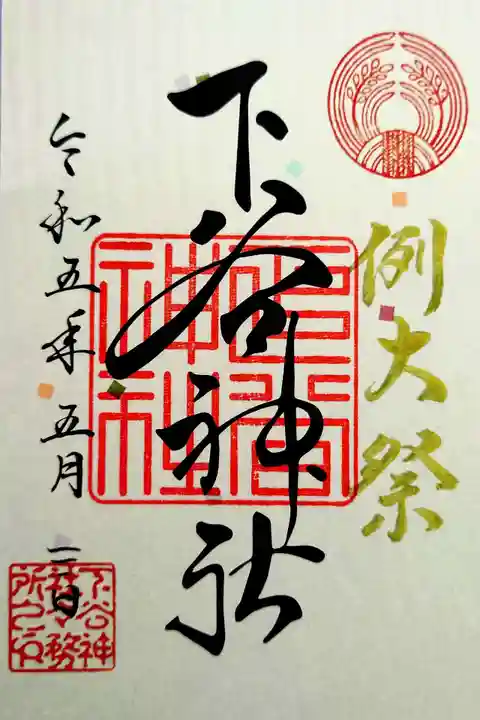 例大祭
下谷神社
令和五年五月二日
下谷神
社々務
所之印